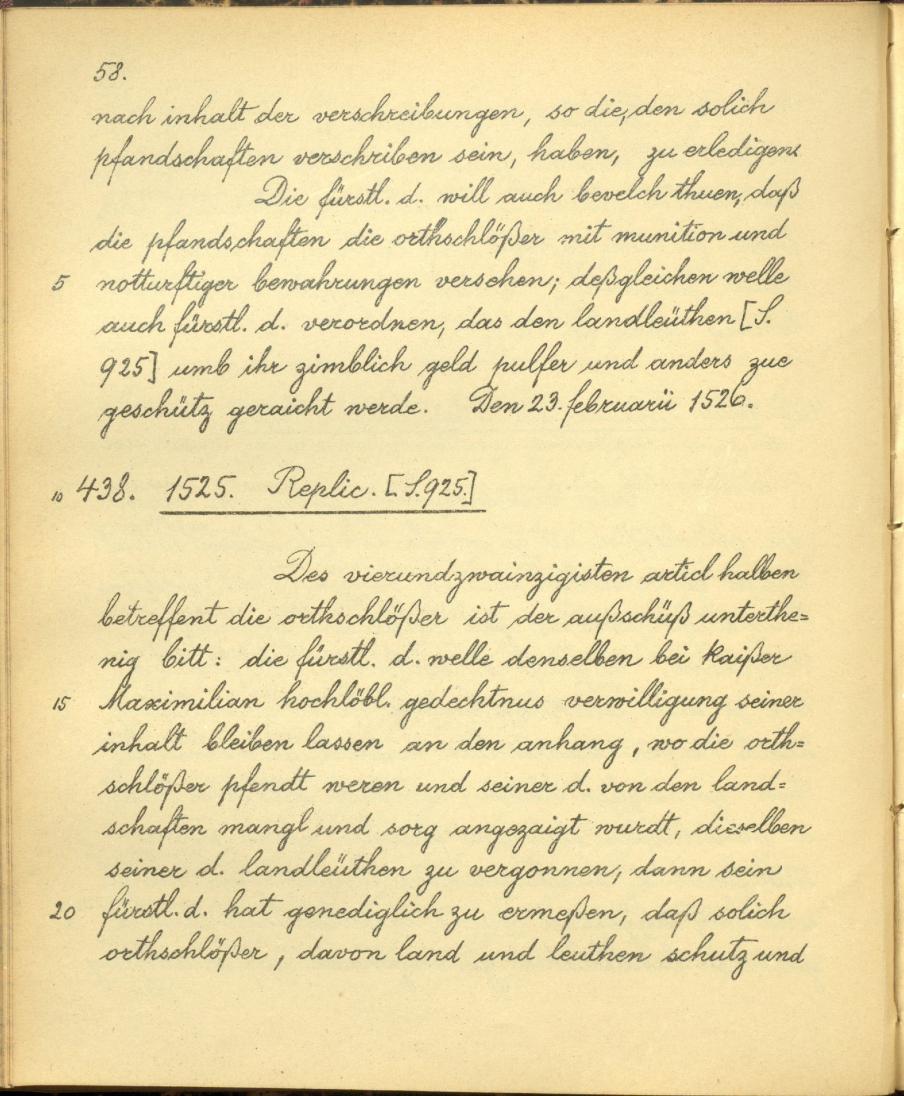 58.
nach inhalt der verschreibungen, so die, den solich
pfandschaften verschriben sein, haben, zu erledigen.
Die fürstl. d. will auch bevelch thuen, daß
die pfandschaften die orthschlößer mit munition und
5 notturftiger bewahrungen versehen; deßgleichen welle
auch fürstl. d. verordnen, das den landleüthen [S.
925] umb ihr zimblich geld pulfer und anders zue
geschütz geraicht werde. Den 23. februarii 1526.
10 438. 1525. Replic. [S.925.]
Des vierundzwainzigisten articl halben
betreffent die orthschlößer ist der außschüß unterthe=
nig bitt: die fürstl. d. welle denselben bei Kaißer
15 Maximilian hochlöbl. gedechtnus verwilligung seiner
inhalt bleiben lassen an den anhang, wo die orth=
schlößer pfendt weren und seiner d. von den land=
schaften mangl und sorg angezaigt wurdt, dieselben
seiner d. landleüthen zu vergonnen, dann sein
20 fürstl. d. hat genediglich zu ermeßen, daß solich
orthschlößer, davon land und leuthen schutz und